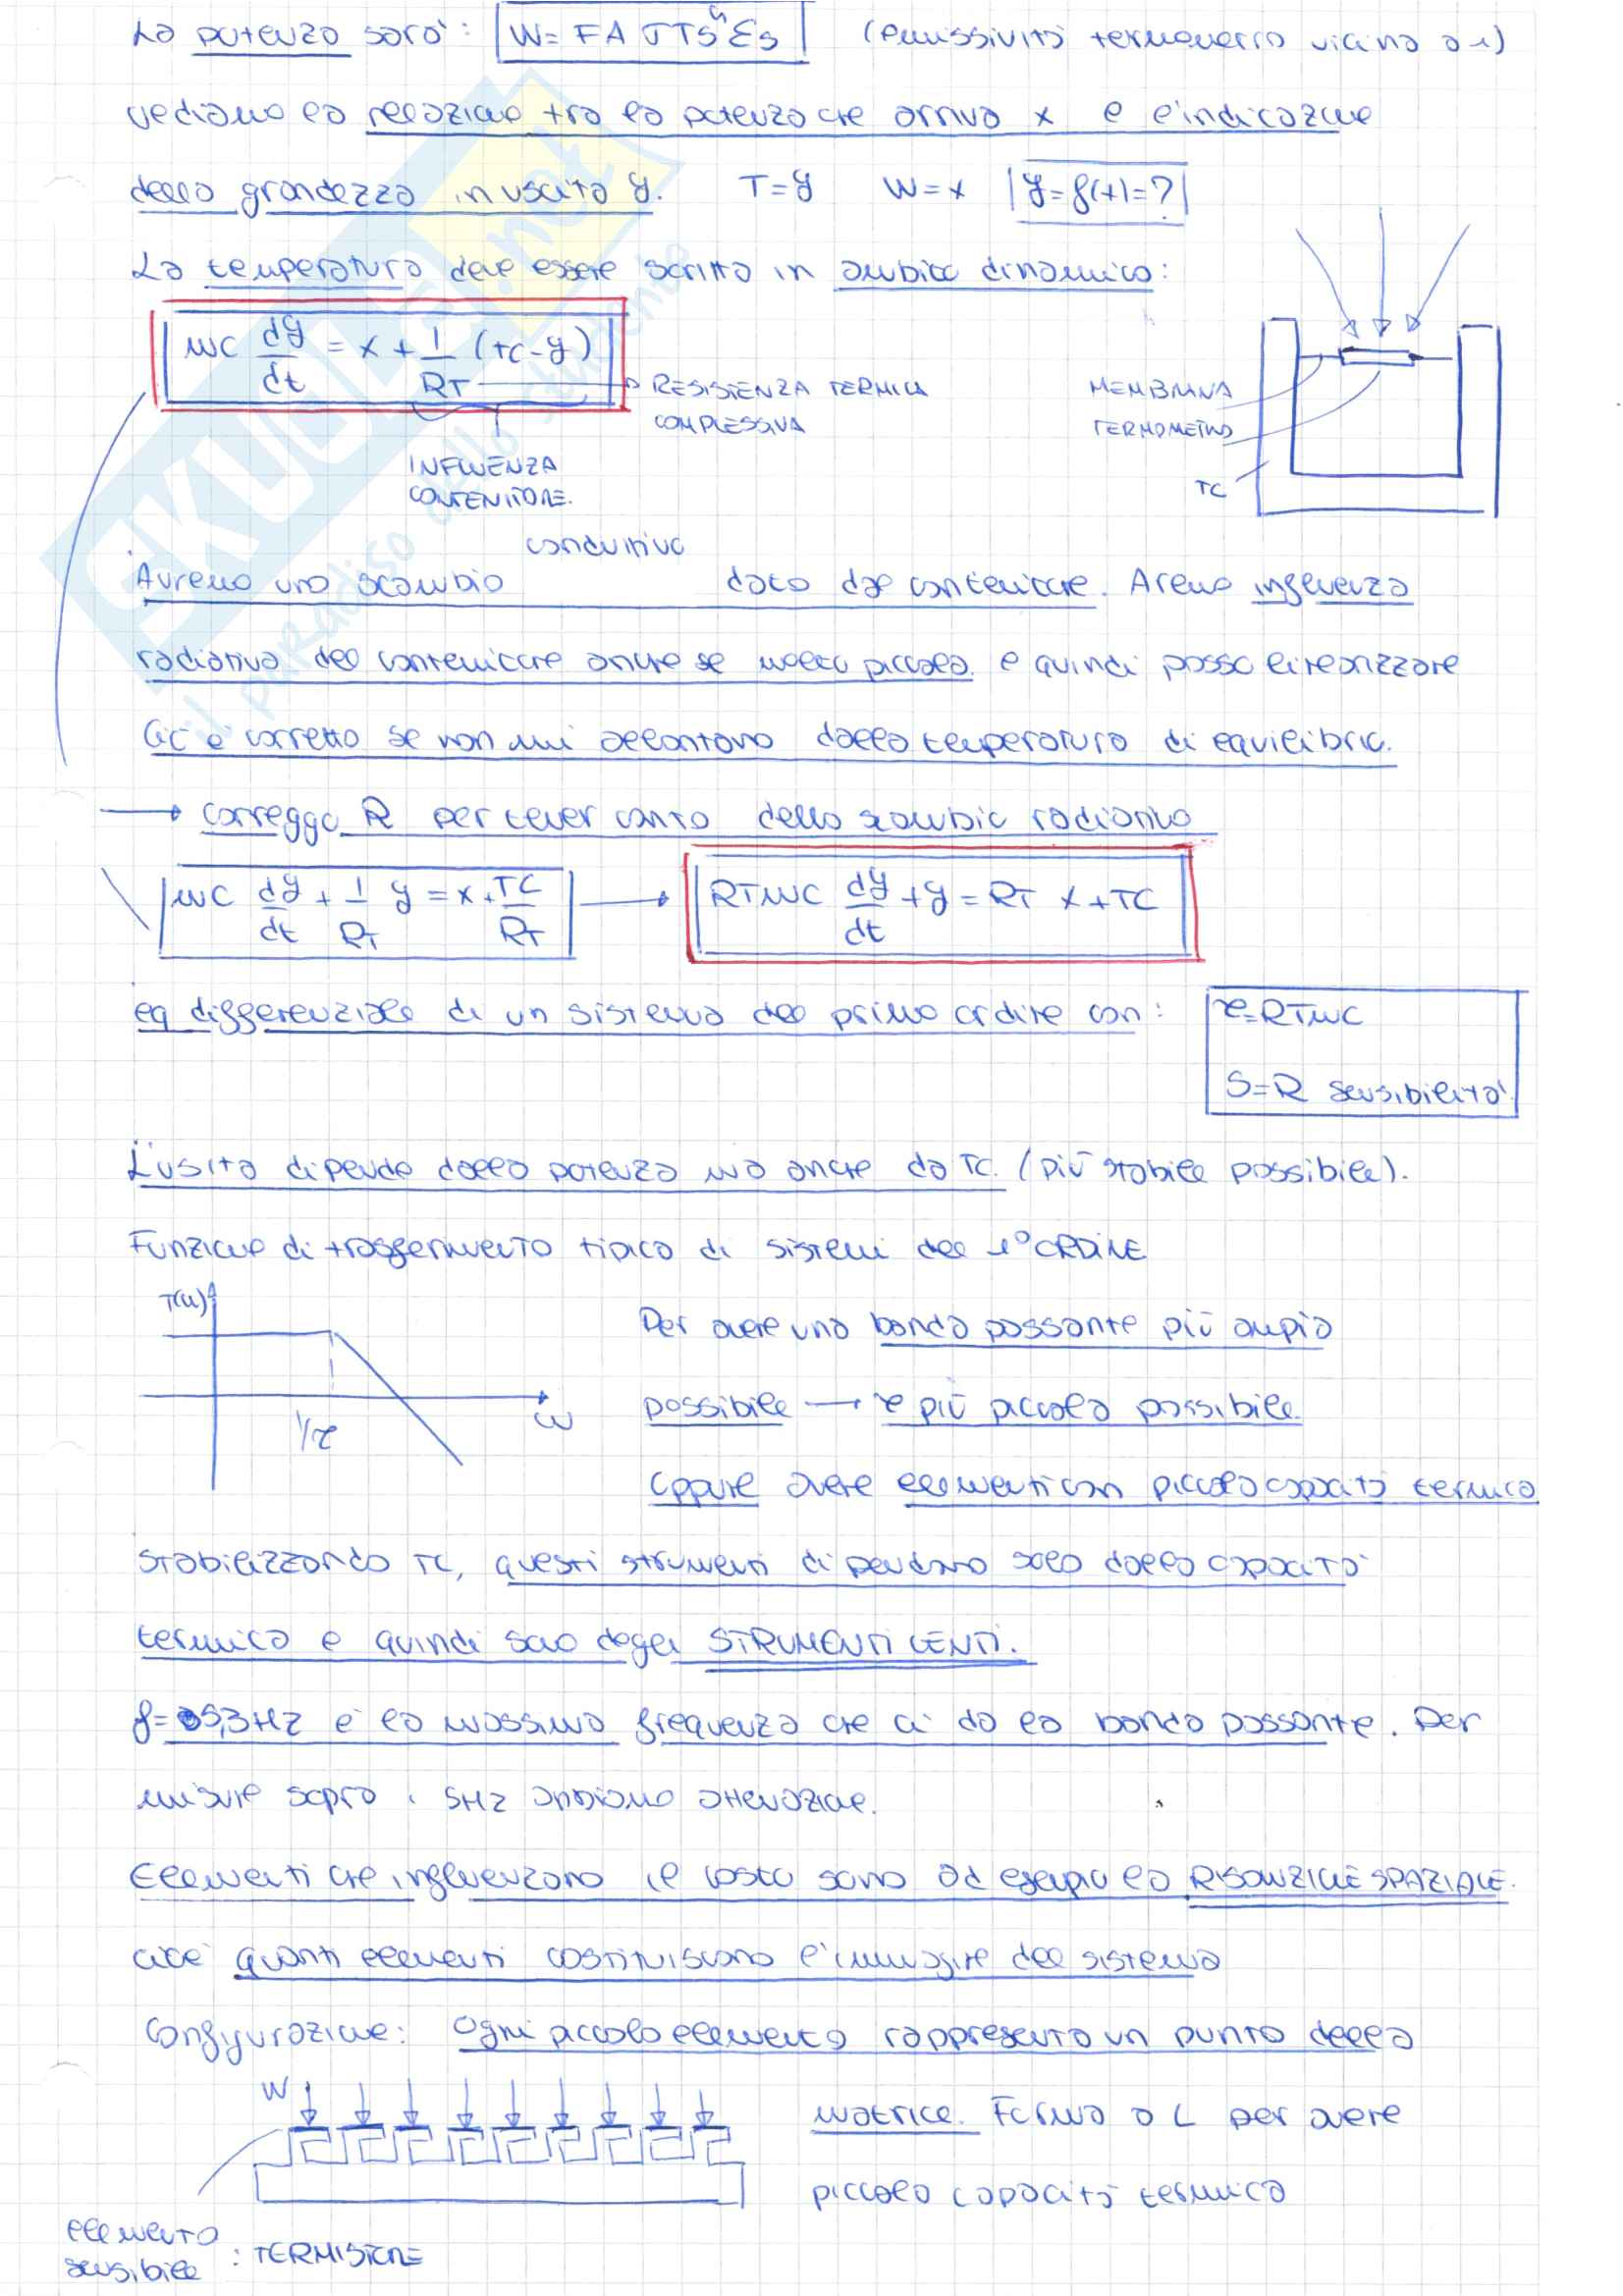 La potenza sarà: W= FAσTs⁴εs (emissività termometro vicina a 1)
vediamo la relazione tra la potenza che arriva x e l'indicazione
della grandezza in uscita y. T=y W=x y=f(x)=?
La temperatura deve essere scritta in ambito dinamico:
mc dy/dt = x + 1/RT (TC-y)
RESISTENZA TERMICA
COMPLESSIVA
INFLUENZA
CONTENITORE.
MEMBRANA
TERMOMETRO
TC
conduttivo
Avremo uno scambio dato dal contenitore. Avremo influenza
radiativa del contenitore anche se molto piccola. e quindi posso linearizzare
Ciò è corretto se non mi allontano dalla temperatura di equilibrio.
→ correggo R per tener conto dello scambio radiativo
mc dy/dt + 1/RT y = x + TC/RT → RTmc dy/dt + y = RT x + TC
eq differenziale di un sistema del primo ordine con: τ=RTmc
S=R sensibilità
L'uscita dipende dalla potenza ma anche da TC. (più stabile possibile).
Funzione di trasferimento tipica di sistemi del 1° ORDINE
T(ω)
1/τ
ω
Per avere una banda passante più ampia
possibile → τ più piccola possibile
oppure avere elementi con piccola capacità termica
stabilizzando TC, questi strumenti dipendono solo dalla capacità
termica e quindi sono degli STRUMENTI LENTI.
f= 5,3Hz è la massima frequenza che ci dà la banda passante. Per
misure sopra i 5Hz abbiamo attenuazione.
Elementi che influenzano il costo sono ad esempio la RISOLUZIONE SPAZIALE.
cioè quanti elementi costituiscono l'immagine del sistema
Configurazione: Ogni piccolo elemento rappresenta un punto della
W
matrice. Forma a L per avere
piccola capacità termica
elemento
sensibile : TERMISTORE
SKUOLA.net
il paradiso dello studente